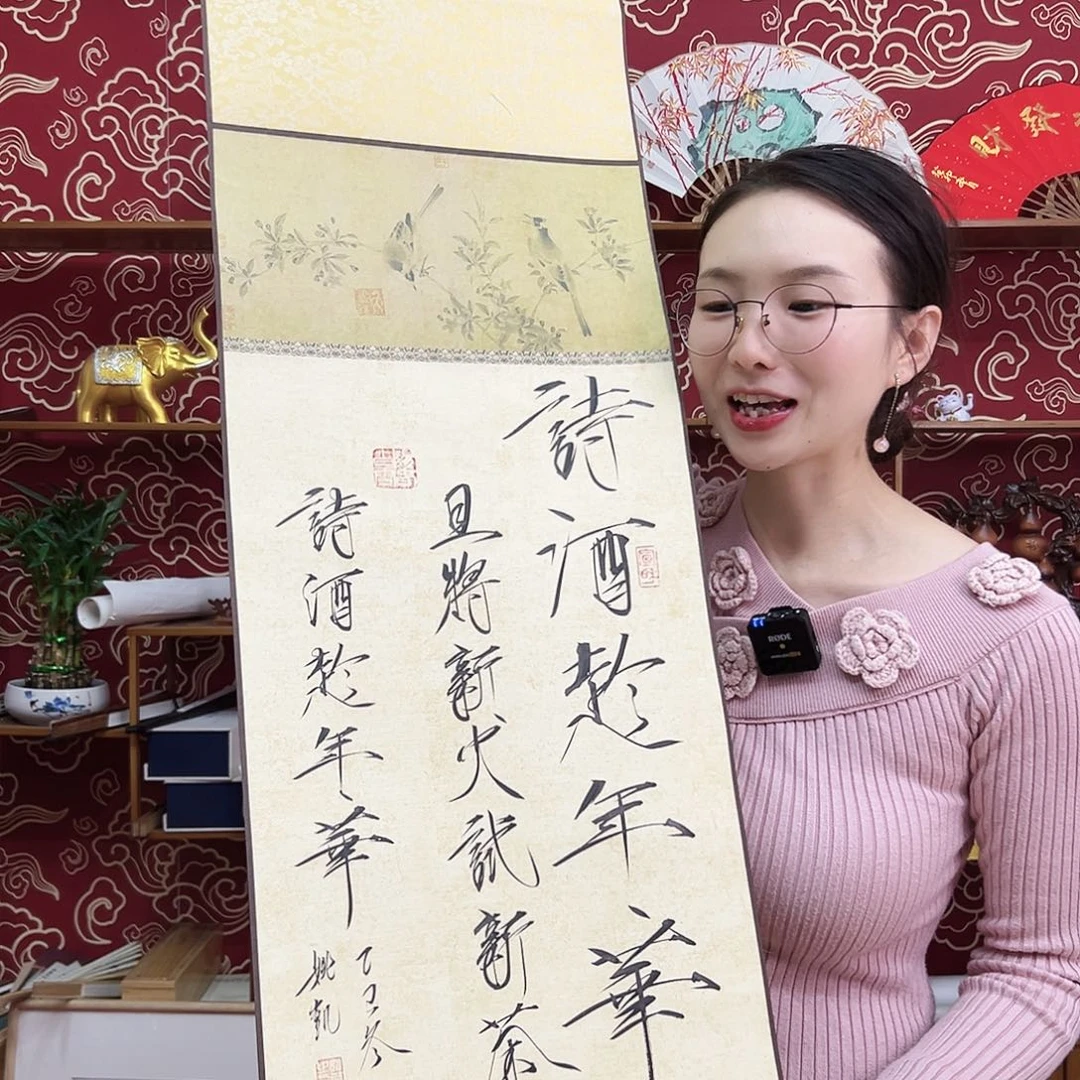 詩酒趁年華
且將新火試新茶
詩酒趁年華
乙巳冬
姚凱
發財
RØDE